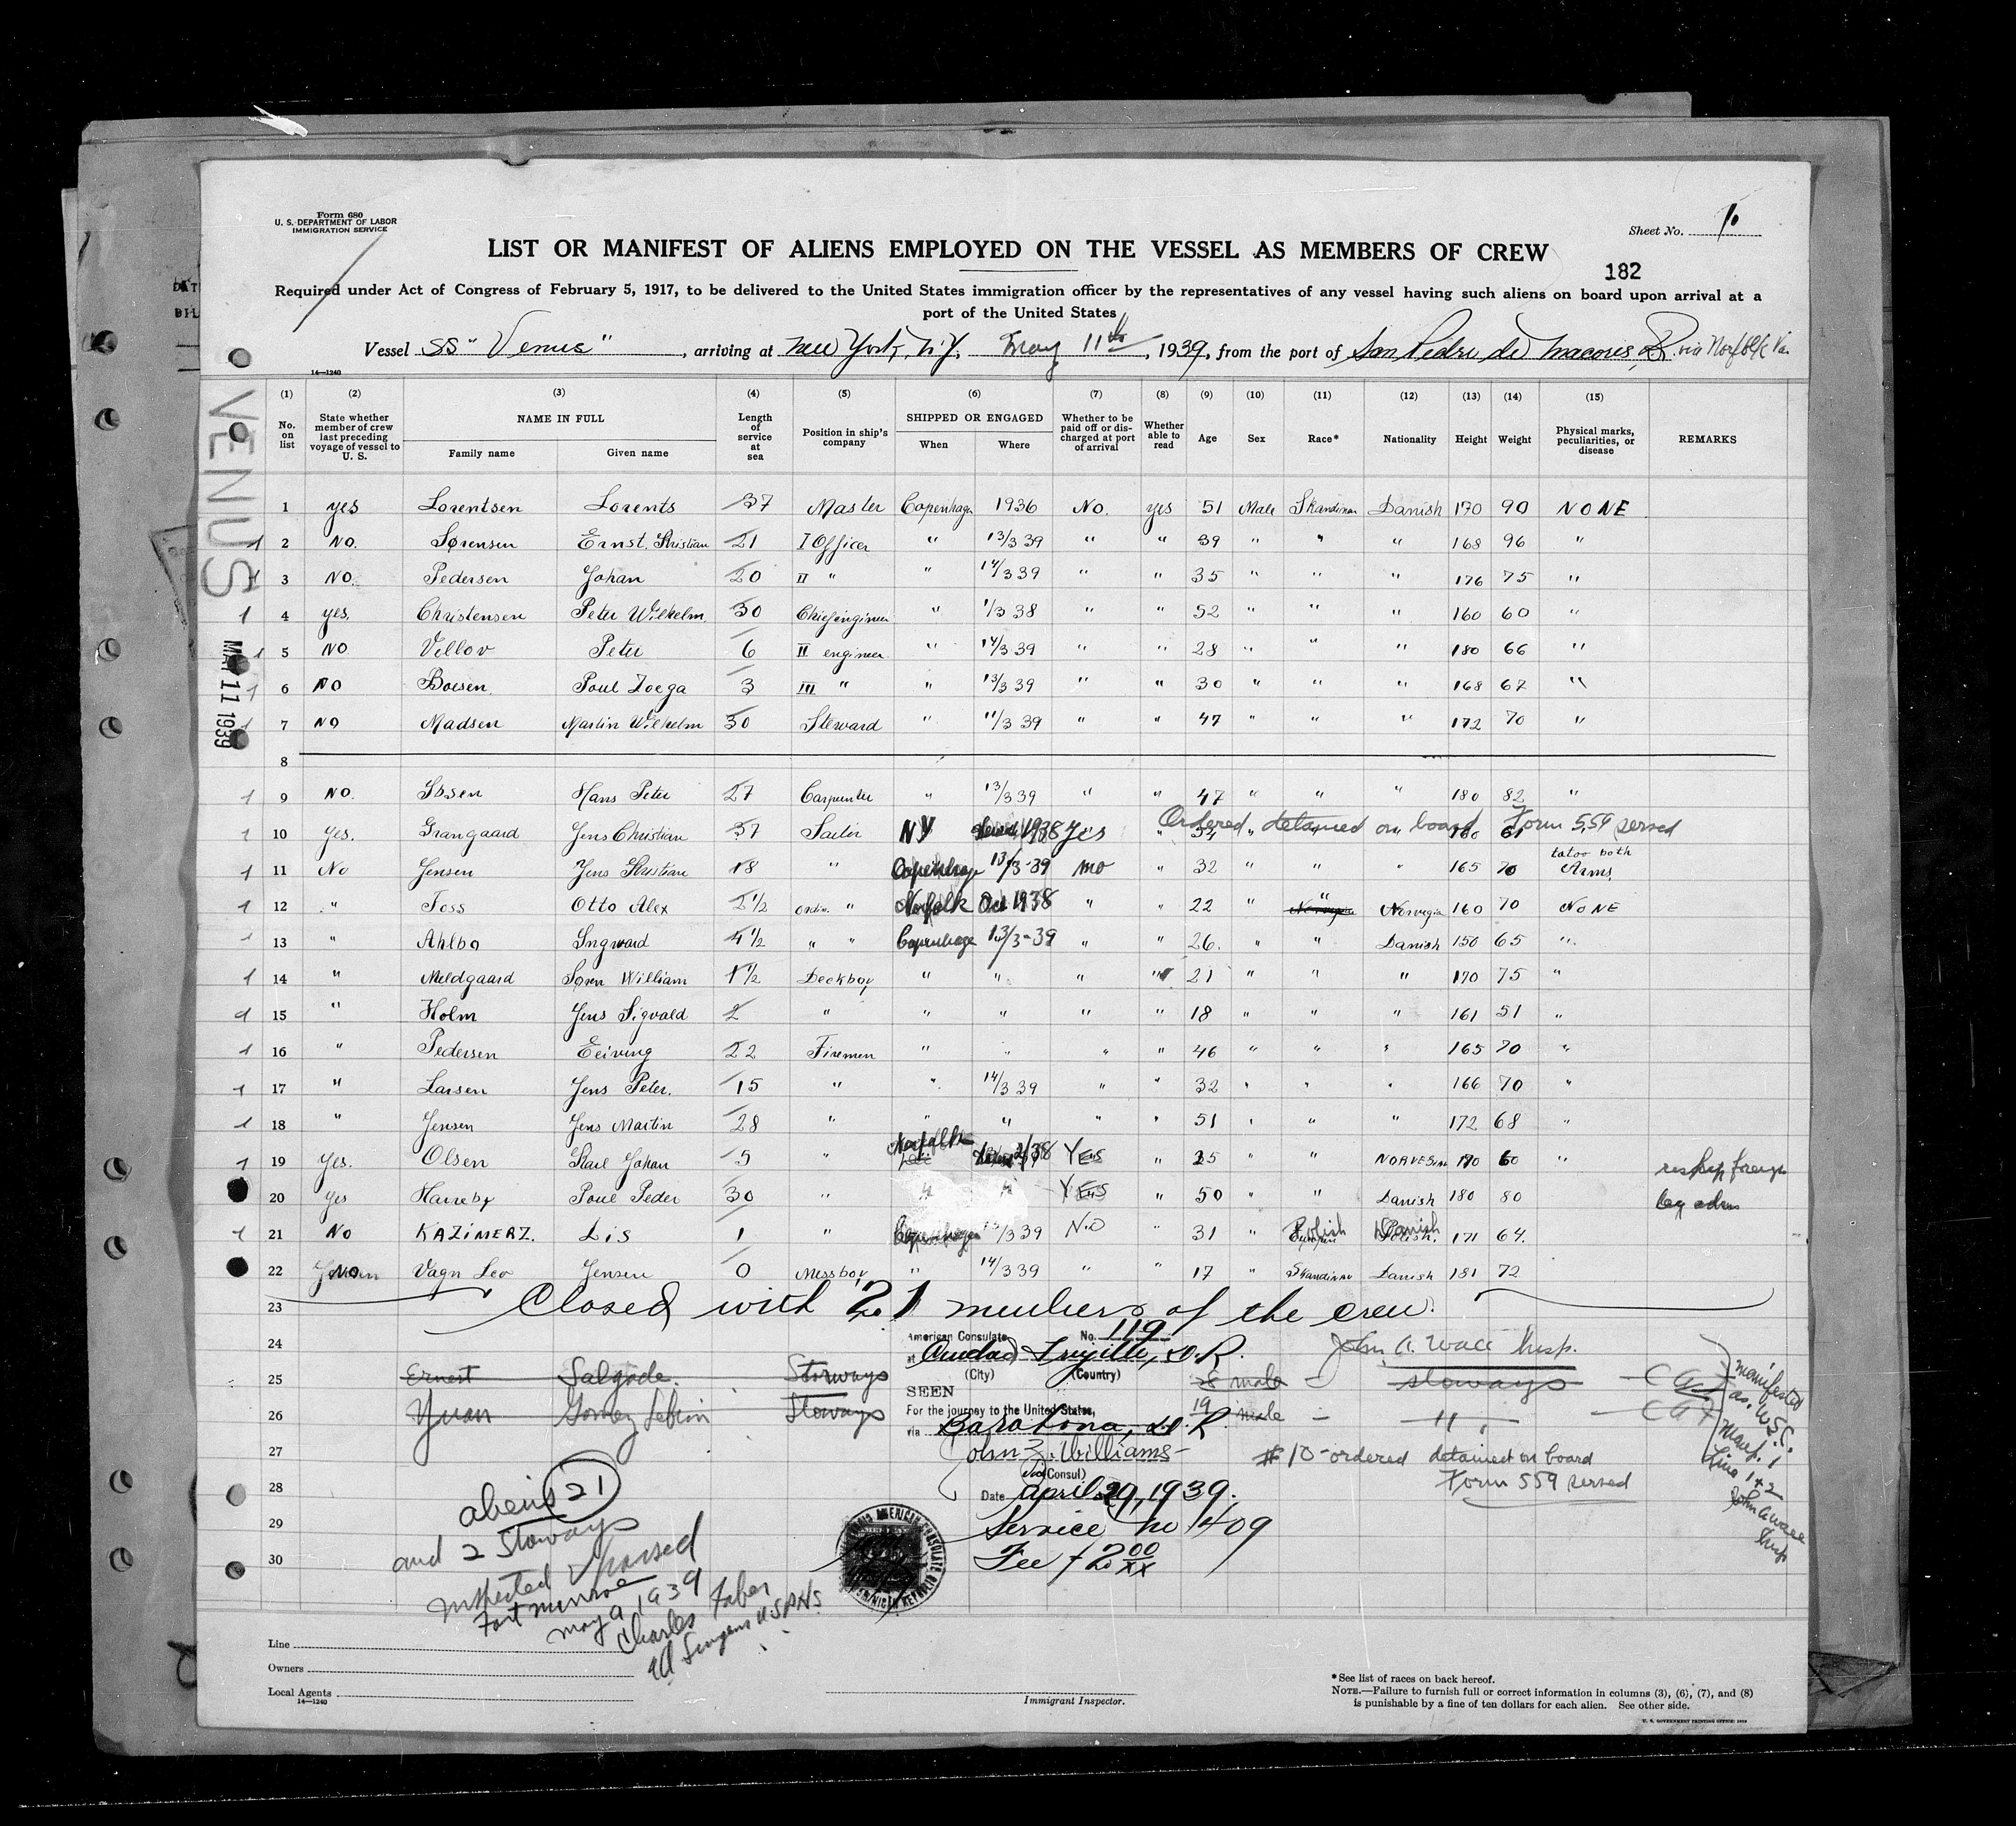 Form 680
U. S. DEPARTMENT OF LABOR
IMMIGRATION SERVICE
Sheet No. 1.
LIST OR MANIFEST OF ALIENS EMPLOYED ON THE VESSEL AS MEMBERS OF CREW
182
Required under Act of Congress of February 5, 1917, to be delivered to the United States immigration officer by the representatives of any vessel having such aliens on board upon arrival at a
port of the United States
Vessel SS "Venus", arriving at New York, N.Y. May 11th, 1939, from the port of San Pedro de Macoris, D.R. via Norfolk Va.
14—1240
VENUS
MAY 11 1939
(1) (2) (3) (4) (5) (6) (7) (8) (9) (10) (11) (12) (13) (14) (15)
No. on list
State whether member of crew last preceding voyage of vessel to U. S.
NAME IN FULL
Family name Given name
Length of service at sea
Position in ship's company
SHIPPED OR ENGAGED
When Where
Whether to be paid off or discharged at port of arrival
Whether able to read
Age Sex Race* Nationality Height Weight
Physical marks, peculiarities, or disease
REMARKS
1 yes Lorentsen Lorents 37 Master Copenhagn 1936 No. yes 51 Male Skandinav Danish 170 90 NONE
1 2 No. Sørensen Ernst Kristian 21 I Officer " 13/3 39 " " 39 " " " 168 96 "
1 3 No. Pedersen Johan 20 II " " 14/3 39 " " 35 " " " 176 75 "
1 4 yes. Christensen Peter Wilhelm 30 Chiefengineer " 1/3 38 " " 52 " " " 160 60 "
1 5 NO Villov Peter 6 II engineer " 14/3 39 " " 28 " " " 180 66 "
1 6 NO Boesen Poul Zoega 3 III " " 13/3 39 " " 30 " " " 168 67 "
1 7 NO Madsen Martin Wilhelm 30 Steward " 11/3 39 " " 47 " " " 172 70 "
8
1 9 NO. Ibsen Hans Peter 27 Carpenter " 13/3 39 " " 47 " " " 180 82 "
1 10 Yes. Grangaard Jens Christian 37 Sailor NY 1938 Yes " " 160 61
Ordered detained on board Form 559 served
1 11 No Jensen Jens Kristian 18 " Copenhage 13/3-39 no " 32 " " " 165 70 tatoo both Arms
1 12 " Foss Otto Alex 2 1/2 ordin. " Norfolk Oct 1938 " " 22 " " Norvegia 160 70 NONE
13 " Ahlbo Ingward 4 1/2 " " Copenhage 13/3-39 " " 26. " " Danish 150 65 "
1 14 " Meldgaard Søren William 1 1/2 Deckboy " " " " 21 " " " 170 75 "
1 15 " Holm Jens Sigvald 2 " " " " " 18 " " " 161 51 "
1 16 " Pedersen 22 Firemen " " " " 46 " " " 165 70 "
1 17 " Larsen Jens Peter. 15 " " 14/3 39 " " 32 " " " 166 70 "
1 18 " Jensen Jens Martin 28 " " " " " 51 " " " 172 68 "
1 19 Yes. Olsen Karl Johan 5 " Norfolk YES " 25 " " NORVEGIAN 170 60 "
20 Yes Harreby Poul Peder 30 " " " YES " 50 " " Danish 180 80
1 21 No KAZIMERZ. Lis 1 " Copenhagen 13/3 39 NO " 31 " Polish 171 64.
22 NO Vagn Leo Jensen 0 Messboy " 14/3 39 " " 17 " Skandinav Danish 181 72
23 Closed with 21 members of the crew.
24 American Consulate No. 119
at Ciudad Trujillo, D.R. John A. Wall Insp.
(City) (Country)
25 Ernest Salgode. Stowways 28 male — stoways
SEEN
For the journey to the United States,
26 Yuan Gomez Lebrin Stoways 19 male — " —
via Barahona, D.R.
manifested as. W.S.C. manf. 1 Line 1+2
27 John Z. Williams
(Vice Consul)
#10 - ordered detained on board
Form 559 served
28 Date April 29, 1939.
29 Service no 1409
30 Fee $ 2 00/xx
aliens 21
and 2 Stoways
inspected passed
Fort Monroe
May 9, 1939
Charles Faber
USPHS.
Line
Owners
Local Agents
14—1240
Immigrant Inspector.
*See list of races on back hereof.
NOTE.—Failure to furnish full or correct information in columns (3), (6), (7), and (8)
is punishable by a fine of ten dollars for each alien. See other side.
U. S. GOVERNMENT PRINTING OFFICE